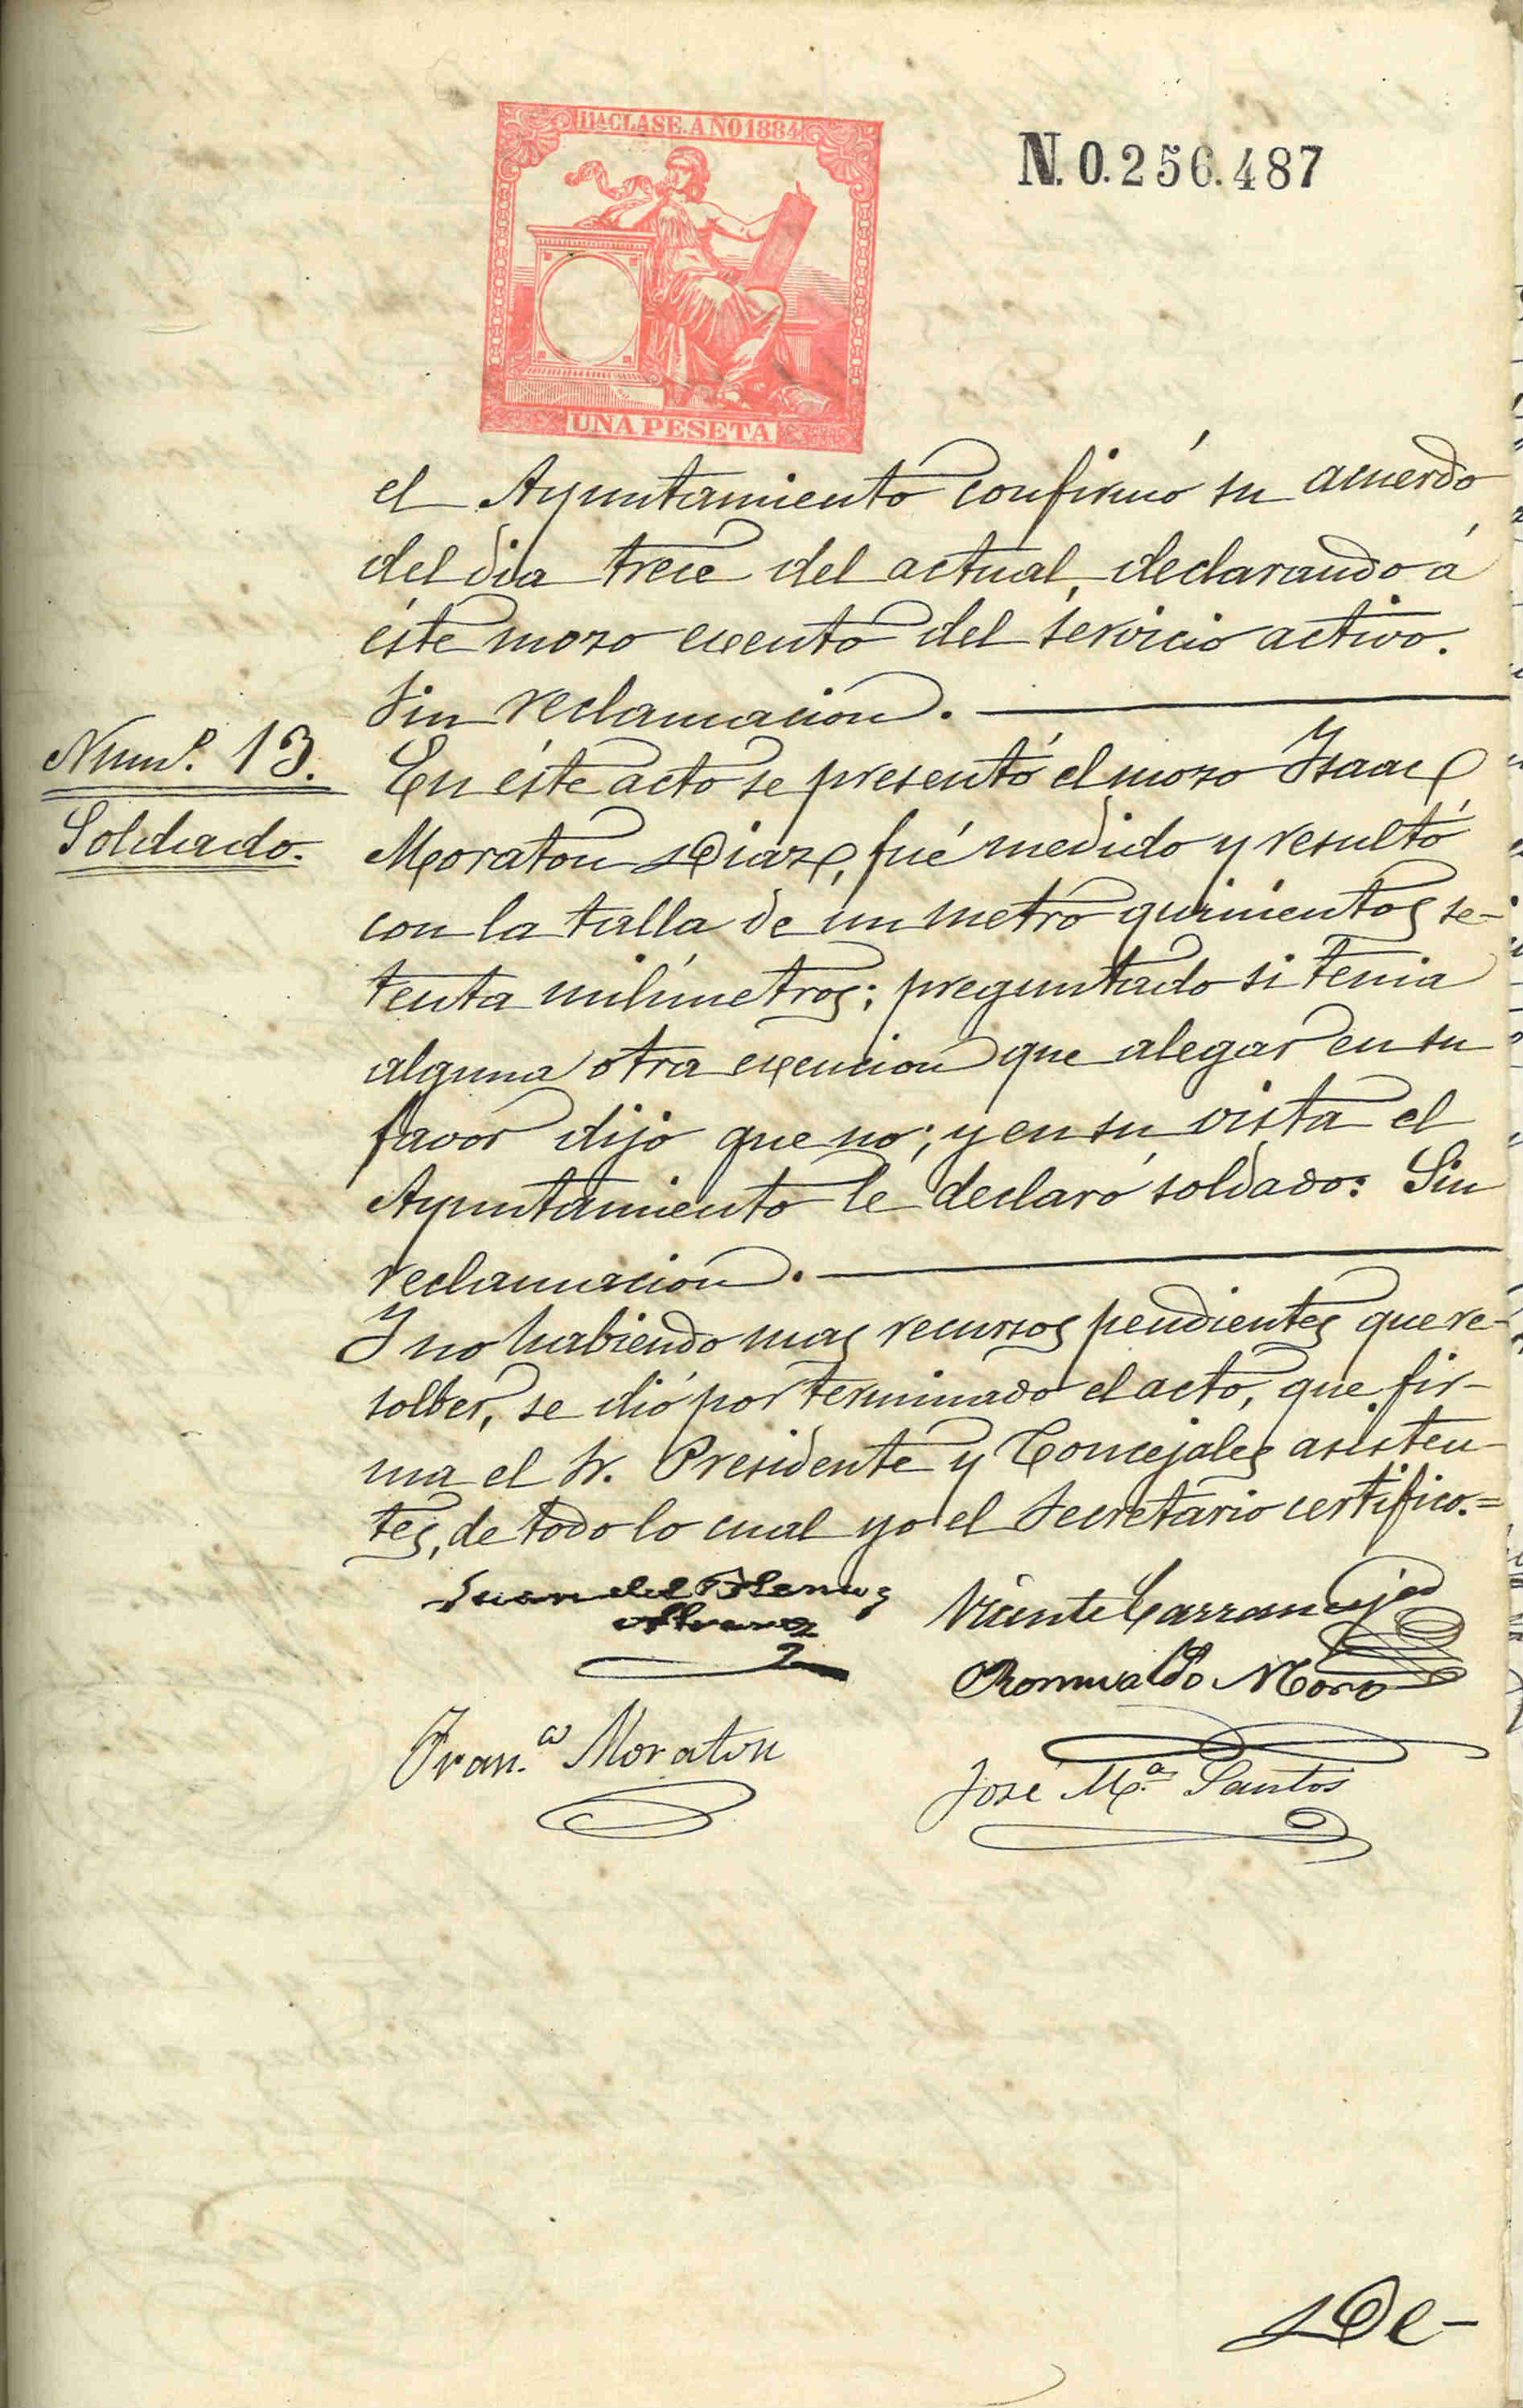 11A CLASE. AÑO 1884
N. 0.256.487
UNA PESETA
el Ayuntamiento confirmó su acuerdo
del dia trece del actual, declarando á
éste mozo exento del servicio activo.
Sin reclamacion.
Numº. 13.
Soldado.
En éste acto se presentó el mozo Isaac
Moraton Diaz, fué medido y resultó
con la talla de un metro quinientos se-
tenta milímetros; preguntado si tenia
alguna otra exencion que alegar en su
favor dijo que no; y en su vista el
Ayuntamiento le declaró soldado: Sin
reclamacion.
Y no habiendo mas recursos pendientes que re-
solber, se dió por terminado el acto, que fir-
ma el Sr. Presidente y Concejales asisten-
tes, de todo lo cual yo el Secretario certifico.=
Juan del
Vicente Carrancejas
Romualdo Moro
Fran.co Moraton
José M.ª Santos
De-